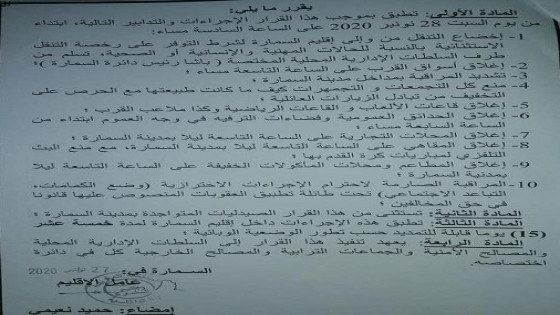 يقرر ما يلي:
المادة الأولى: تطبق بموجب هذا القرار الإجراءات والتدابير التالية، ابتداء
من يوم السبت 28 نونبر 2020 على الساعة السادسة مساء:
1- إخضاع التنقل من وإلى إقليم السمارة لشرط التوفر على رخصة التنقل
الاستثنائية بالنسبة للحالات المهنية والإنسانية أو الصحية، تسلم من
طرف السلطات الإدارية المحلية المختصة (باشا رئيس دائرة السمارة)؛
2- إغلاق أسواق القرب على الساعة التاسعة مساء؛
3- تشديد المراقبة بمداخل مدينة السمارة؛
4- منع كل التجمعات و التجمهرات كيف ما كانت طبيعتها مع الحرص على
التخفيف من تبادل الزيارات العائلية؛
5- إغلاق قاعات الألعاب و القاعات الرياضية وكذا ملاعب القرب؛
6- إغلاق الحدائق العمومية وفضاءات الترفيه في وجه العموم ابتداء من
الساعة السابعة مساء؛
7- إغلاق المحلات التجارية على الساعة التاسعة ليلا بمدينة السمارة؛
8- إغلاق المقاهي على الساعة التاسعة ليلا بمدينة السمارة، مع منع البث
التلفزي لمباريات كرة القدم بها؛
9- إغلاق المطاعم ومحلات المأكولات الخفيفة على الساعة التاسعة ليلا
بمدينة السمارة؛
10- المراقبة الصارمة لاحترام الإجراءات الاحترازية (وضع الكمامات،
التباعد الاجتماعي) تحت طائلة تطبيق العقوبات المنصوص عليها قانونا
في حق المخالفين؛
المادة الثانية: تستثنى من هذا القرار الصيدليات المتواجدة بمدينة السمارة؛
المادة الثالثة: تطبق هذه الإجراءات داخل إقليم السمارة لمدة خمسة عشر
(15) يوما قابلة للتمديد حسب تطور الوضعية الوبائية؛
المادة الرابعة: يعهد تنفيذ هذا القرار إلى السلطات الإدارية المحلية
والمصالح الأمنية والجماعات الترابية والمصالح الخارجية كل في دائرة
اختصاصه.
السمارة في: 27 نونبر 2020
عامل الإقليم
إمضاء: حميد نعيمي